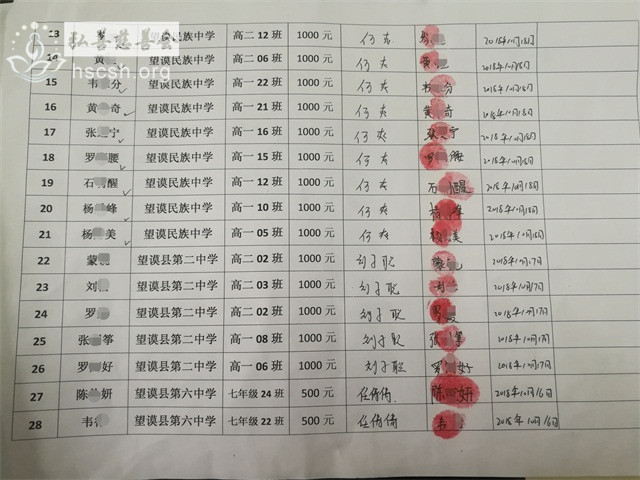 弘善慈善会
hscsh.org
13 罗 望谟民族中学 高二 12 班 1000 元 何友 2018年10月18日
14 黄 望谟民族中学 高二 06 班 1000 元 何友 黄 2018年10月18日
15 韦 分 望谟民族中学 高一 22 班 1000 元 何友 韦 分 2018年10月18日
16 黄 奇 望谟民族中学 高一 21 班 1000 元 何友 黄 奇 2018年10月18日
17 张 宁 望谟民族中学 高一 16 班 1000 元 何友 张 宁 2018年10月18日
18 罗 腰 望谟民族中学 高一 15 班 1000 元 何友 罗 2018年10月18日
19 石 醒 望谟民族中学 高一 12 班 1000 元 何友 石 醒 2018年10月18日
20 杨 峰 望谟民族中学 高一 10 班 1000 元 何友 杨 峰 2018年10月18日
21 杨 美 望谟民族中学 高一 05 班 1000 元 何友 杨 美 2018年10月18日
22 蒙 望谟县第二中学 高二 02 班 1000 元 刘子聪 蒙 2018年10月17日
23 刘 望谟县第二中学 高二 03 班 1000 元 刘子聪 刘 2018年10月17日
24 罗 望谟县第二中学 高二 02 班 1000 元 刘子聪 罗 2018年10月17日
25 张 筝 望谟县第二中学 高一 08 班 1000 元 刘子聪 张 筝 2018年10月17日
26 罗 好 望谟县第二中学 高一 06 班 1000 元 刘子聪 罗 好 2018年10月17日
27 陈 妍 望谟县第六中学 七年级 24 班 500 元 任倩倩 陈 妍 2018年10月16日
28 韦 望谟县第六中学 七年级 22 班 500 元 任倩倩 韦 2018年10月16日